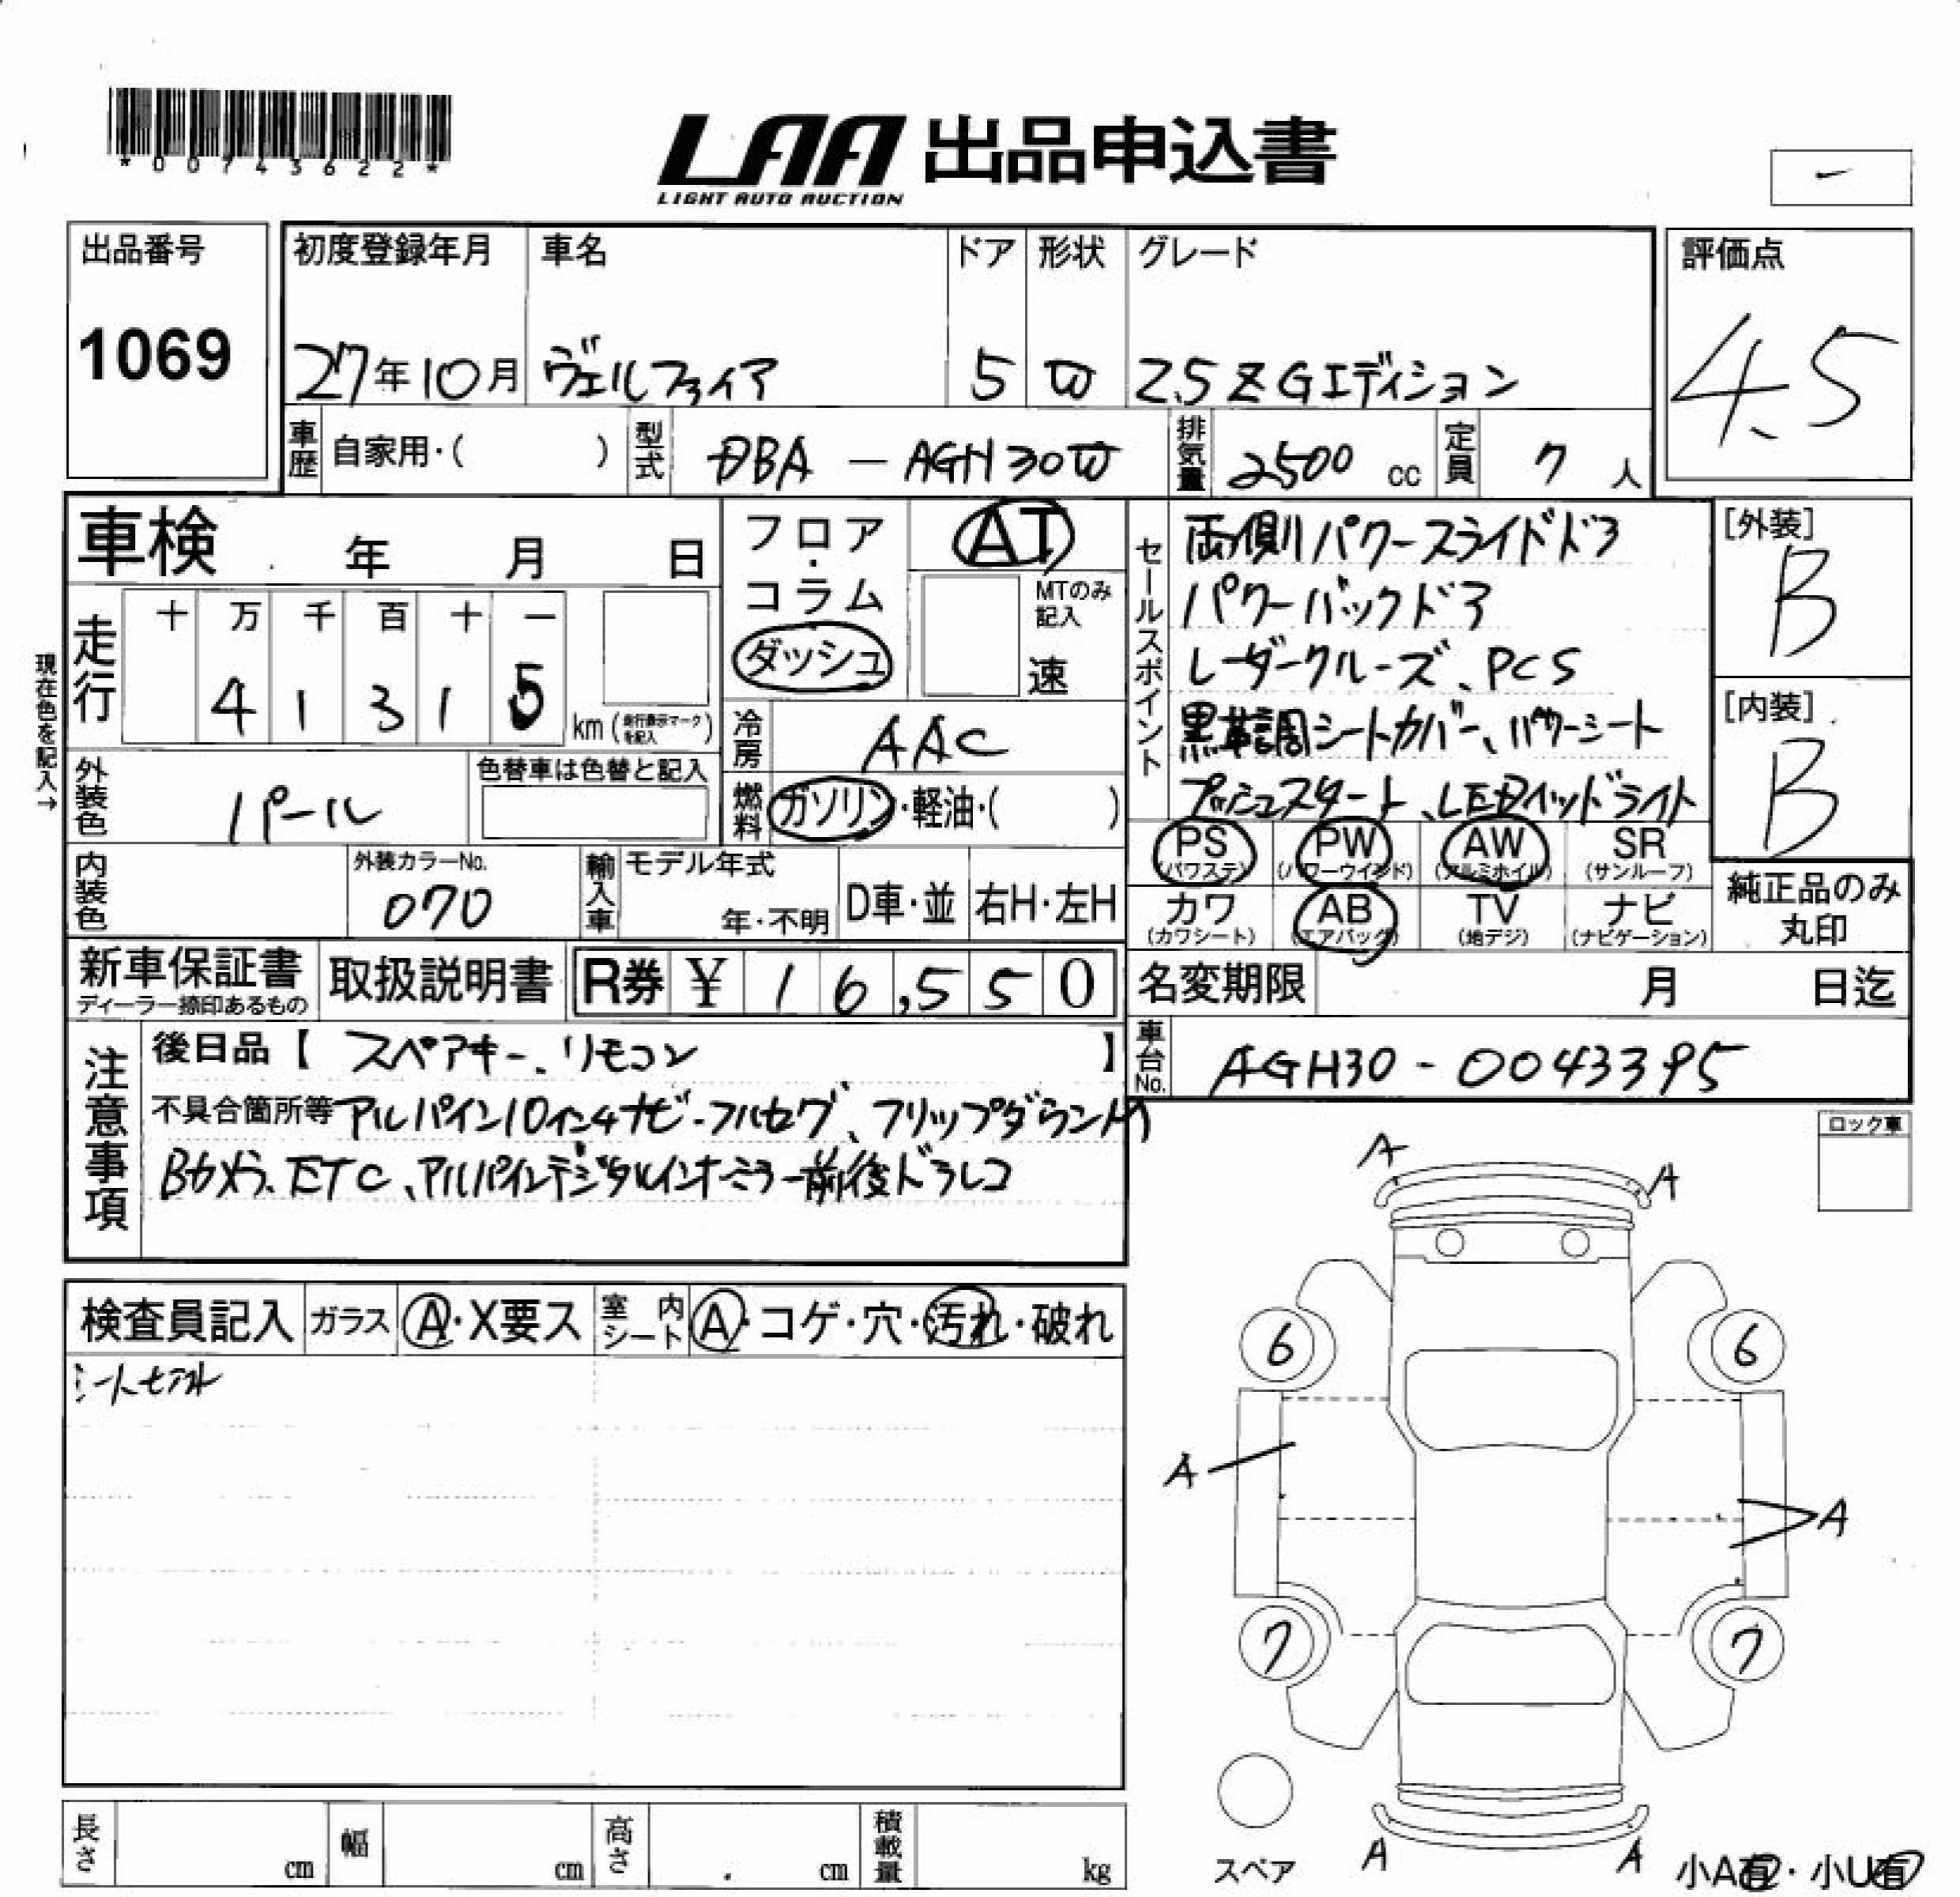 *00743622*
LAA 出品申込書
LIGHT AUTO AUCTION
-
出品番号
1069
初度登録年月
27年10月
車名
ヴェルファイア
ドア
5
形状
W
グレード
2.5 Z Gエディション
評価点
4.5
車歴 自家用・( )
型式 DBA - AGH30W
排気量 2500 cc
定員 7 人
車検 年 月 日
現在色を記入→
走行
十 万 千 百 十 一
4 1 3 1 5
km(走行表示マークを記入)
フロア・コラム
ダッシュ
AT
MTのみ記入
速
冷房 AAC
燃料 ガソリン・軽油・( )
外装色 パール
色替車は色替と記入
内装色
外装カラーNo.
070
輸入車
モデル年式
年・不明
D車・並
右H・左H
セールスポイント
両側パワースライドドア
パワーバックドア
レーダークルーズ、PCS
黒革調シートカバー、パワーシート
プッシュスタート、LEDヘッドライト
[外装]
B
[内装]
B
PS (パワステ)
PW (パワーウインド)
AW (アルミホイル)
SR (サンルーフ)
カワ (カワシート)
AB (エアバッグ)
TV (地デジ)
ナビ (ナビゲーション)
純正品のみ丸印
新車保証書
ディーラー捺印あるもの
取扱説明書
R券 ¥ 16,550
名変期限 月 日迄
車台No. AGH30-0043395
注意事項
後日品【 スペアキー、リモコン 】
不具合箇所等 アルパイン10インチナビ-フルセグ、フリップダウンM
Bカメラ、ETC、アルパインデジタルインナーミラー前後ドラレコ
ロック車
検査員記入
ガラス A・X要ス
室内シート A・コゲ・穴・汚れ・破れ
A
A
6
6
A
A
7
7
スペア
A
A
小A有・小U有
長さ cm
幅 cm
高さ cm
積載量 kg